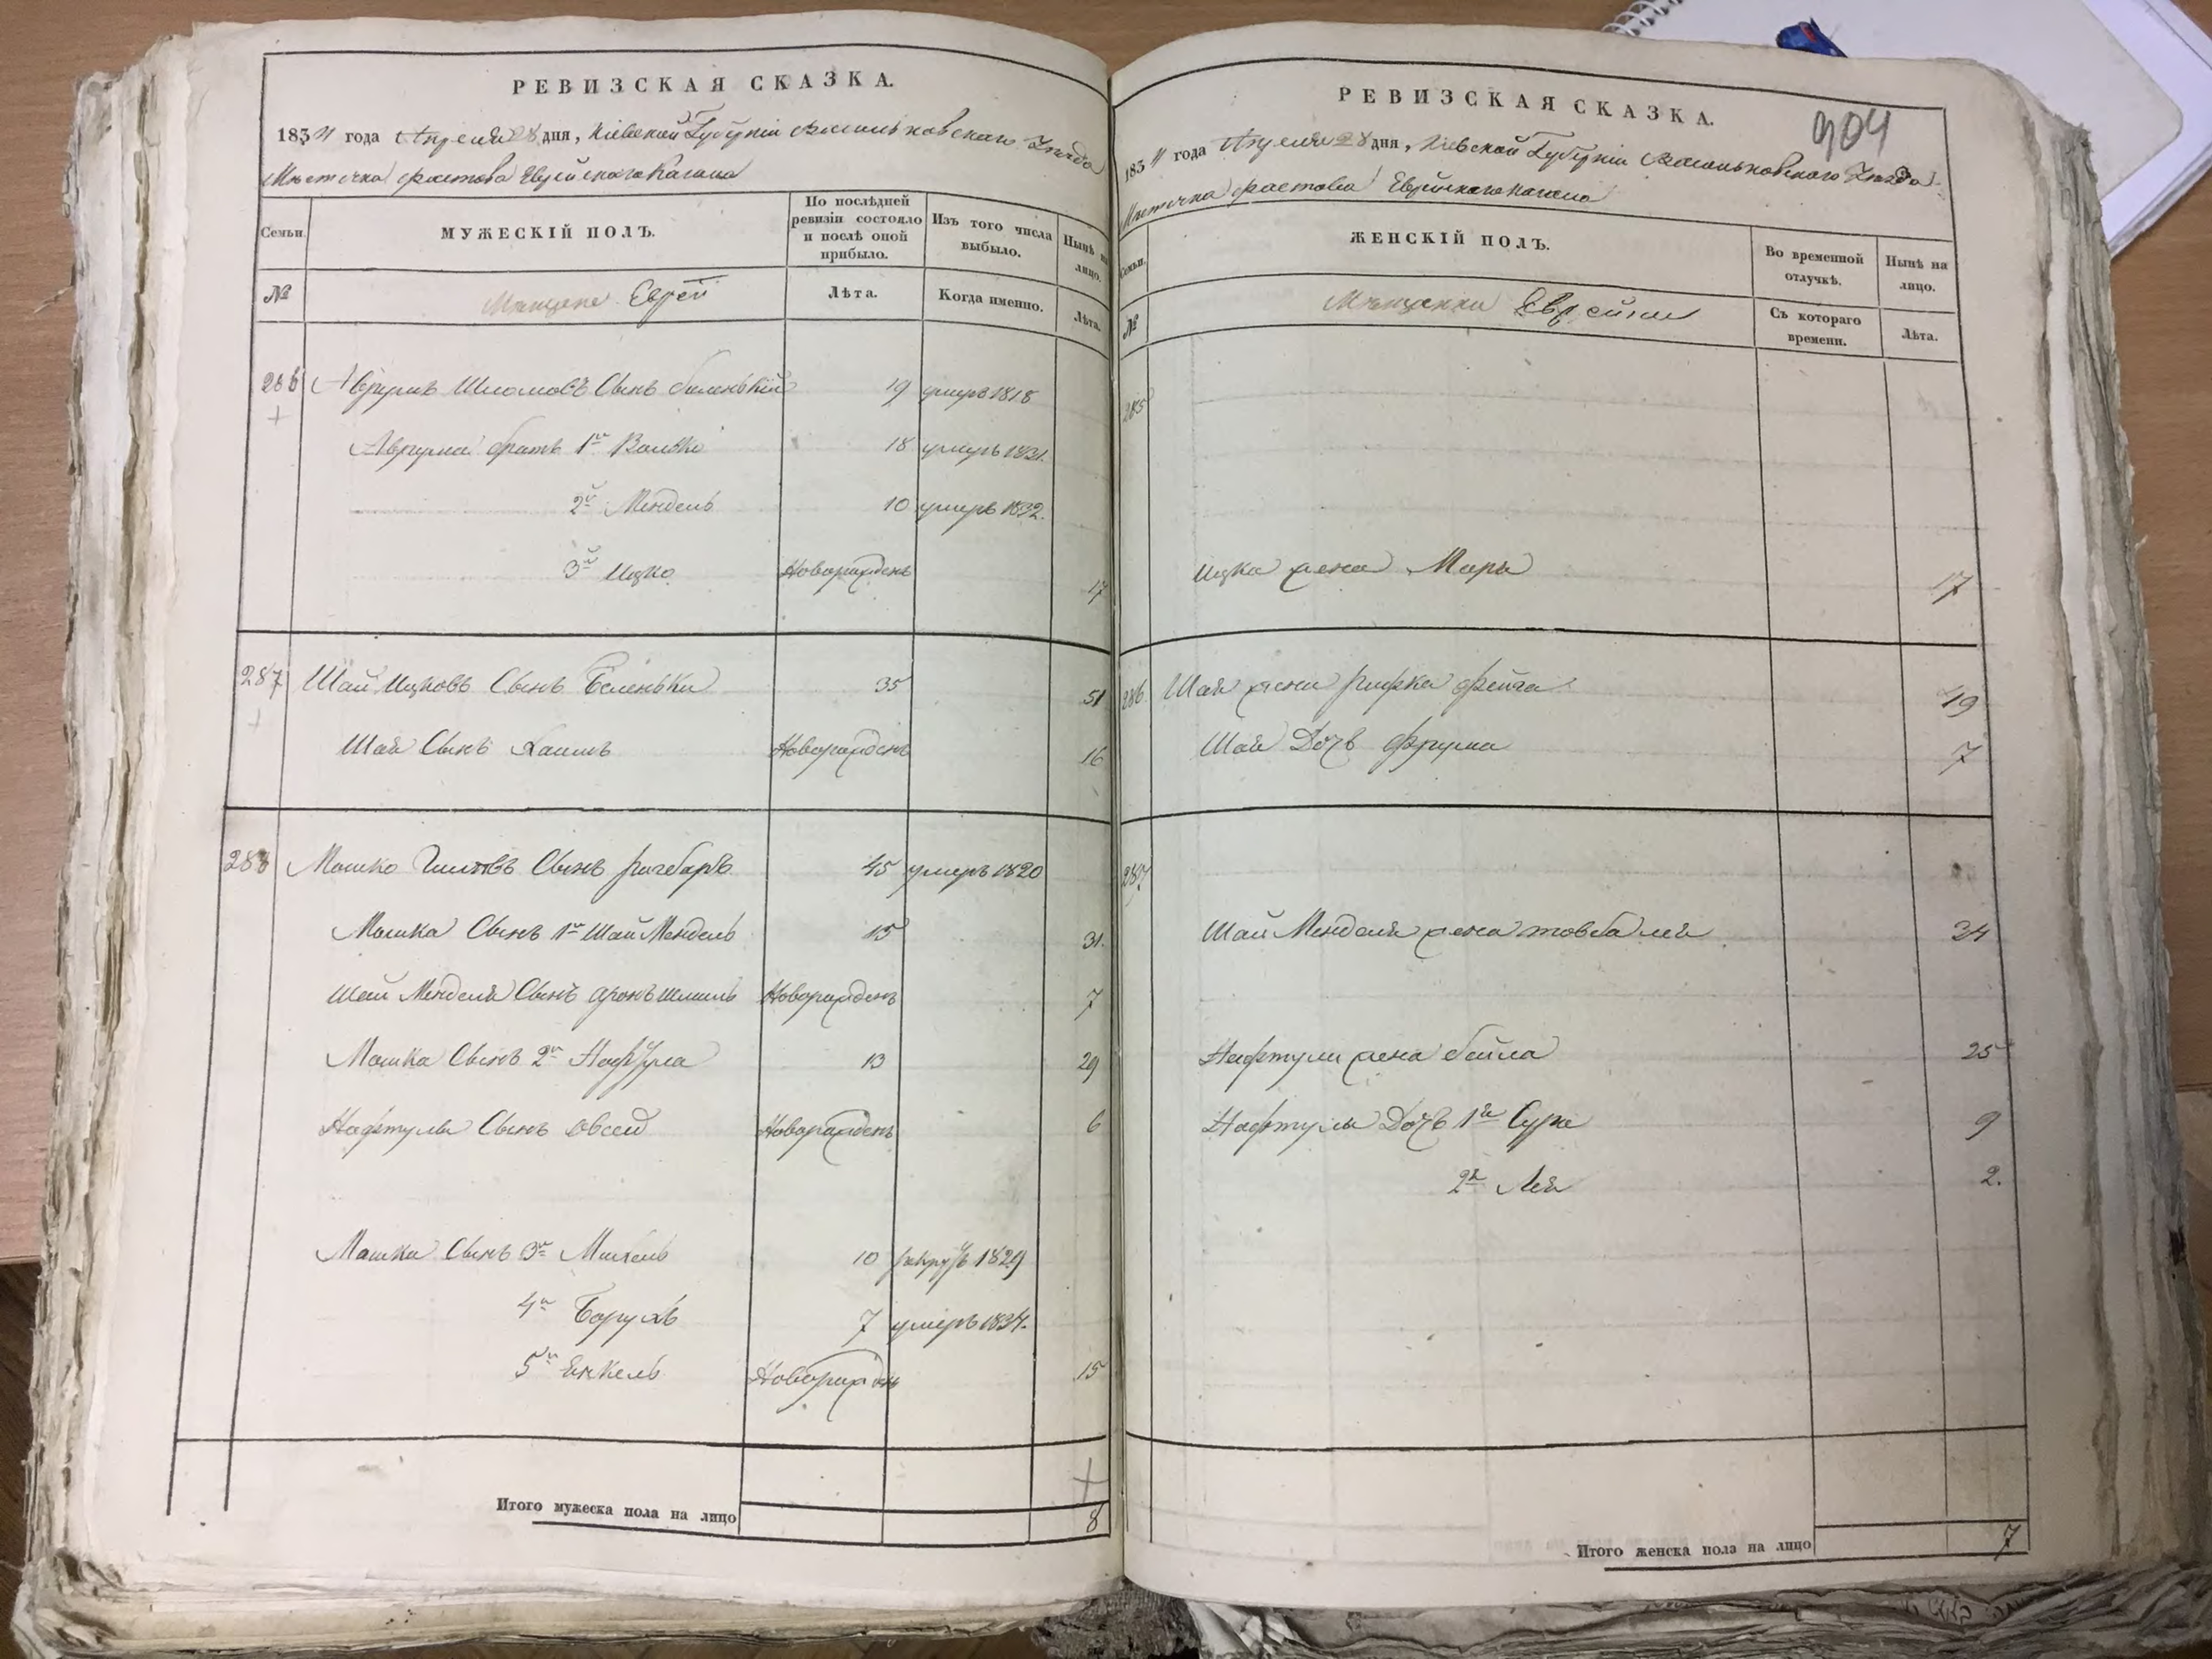 РЕВИЗСКАЯ СКАЗКА.
1834 года Апреля 28 дня, Кіевской Губерніи Васильковскаго Уезда
Местечка Фастова Еврейскаго Кагала
Семьи.
МУЖЕСКІЙ ПОЛЪ.
По послѣдней ревизіи состояло и послѣ оной прибыло.
Изъ того числа выбыло.
Нынѣ на лицо.
№
Мещане Еврей
Лѣта.
Когда именно.
Лѣта.
286 Аврумъ Шломовъ Сынъ беленькій 19 умеръ 1818
Аврума братъ 1й Волько 18 умеръ 1831.
2й Мендель 10 умеръ 1832.
3й Ицко Новорожденъ 17
287 Шай Ицковъ Сынъ Беленьки 35 51
Шаи Сынъ Хаимъ Новорожденъ 16
288 Мошко Сынъ 45 умеръ 1820
Мошка Сынъ 1й Шай Мендель 15 31.
Шаи Менделя Сынъ Аронъ Шмиль Новорожденъ 7
Мошка Сынъ 2й Нафтула 13 29
Нафтулы Сынъ Овсей Новорожденъ 6
Мошка Сынъ 3й Михель 10 1829
4й Борухъ 7 умеръ 1834.
5й Янкель Новорожден 15
Итого мужеска пола на лицо 8
РЕВИЗСКАЯ СКАЗКА.
904
1834 года Апреля 28 дня, Кіевской Губерніи Васильковскаго Уезда
Местечка Фастова Еврейскаго Кагала
Семьи.
ЖЕНСКІЙ ПОЛЪ.
Во временной отлучкѣ.
Нынѣ на лицо.
№
Мещанки Еврейки
Съ котораго времени.
Лѣта.
285
Ицка жена Мара 17
286 Шаи жена Рифка Фейга 49
Шаи Дочь Фрума 7
287
Шаи Менделя жена Товба Лея 34
Нафтулы жена бейла 25
Нафтулы Дочь 1я Сура 9
2я Лея 2.
Итого женска пола на лицо 7